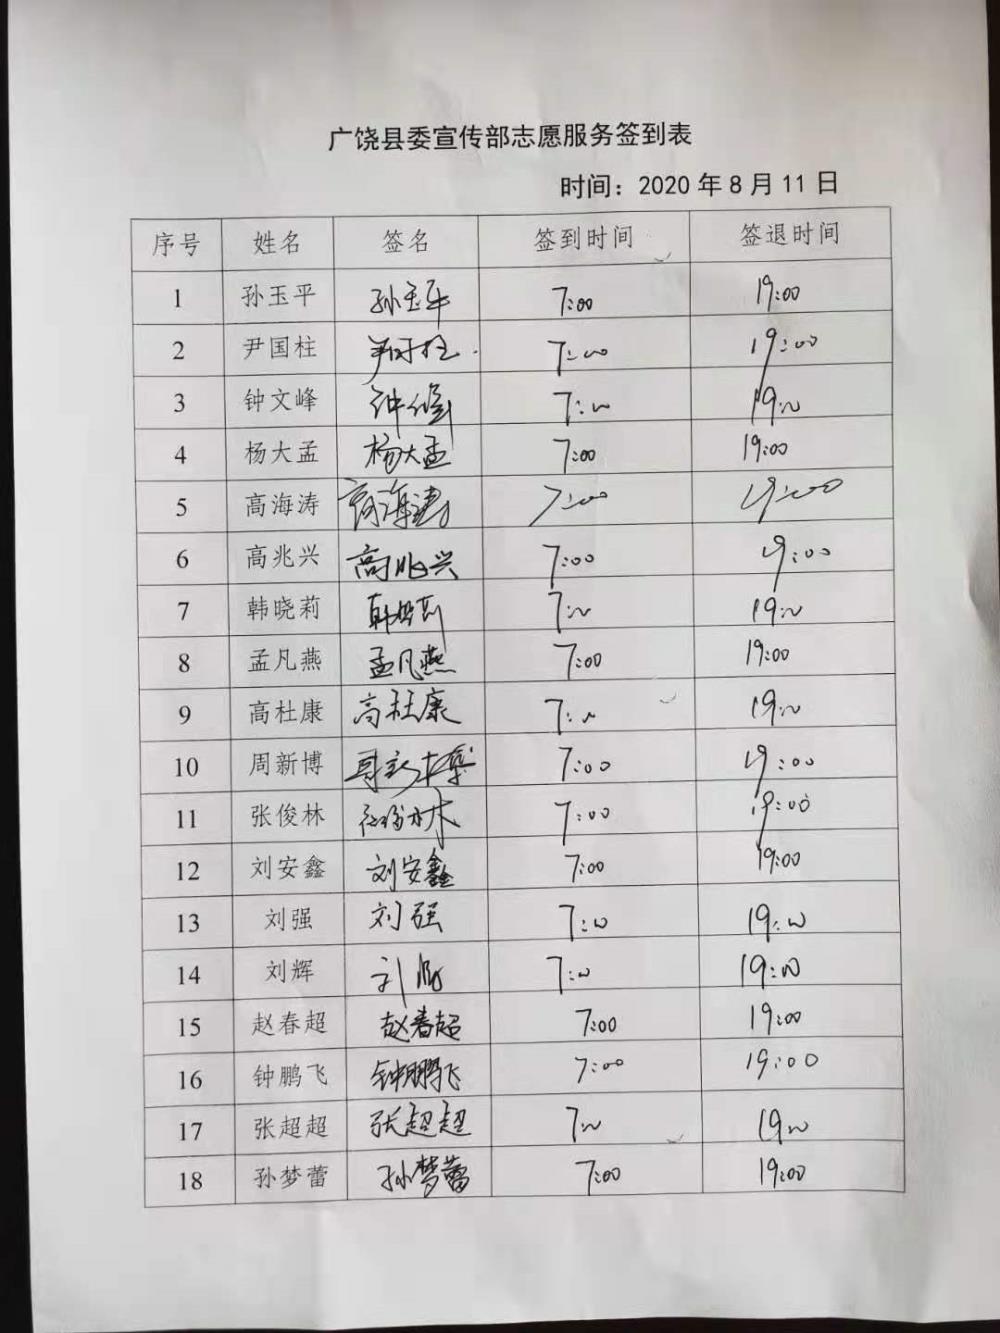 广饶县委宣传部志愿服务签到表
时间：2020年8月11日
序号 姓名 签名 签到时间 签退时间
1 孙玉平 孙玉平 7:00 19:00
2 尹国柱 尹国柱 7:00 19:00
3 钟文峰 钟文峰 7:00 19:00
4 杨大孟 杨大孟 7:00 19:00
5 高海涛 高海涛 7:00 19:00
6 高兆兴 高兆兴 7:00 19:00
7 韩晓莉 韩晓莉 7:00 19:00
8 孟凡燕 孟凡燕 7:00 19:00
9 高杜康 高杜康 7:00 19:00
10 周新博 周新博 7:00 19:00
11 张俊林 张俊林 7:00 19:00
12 刘安鑫 刘安鑫 7:00 19:00
13 刘强 刘强 7:00 19:00
14 刘辉 刘辉 7:00 19:00
15 赵春超 赵春超 7:00 19:00
16 钟鹏飞 钟鹏飞 7:00 19:00
17 张超超 张超超 7:00 19:00
18 孙梦蕾 孙梦蕾 7:00 19:00